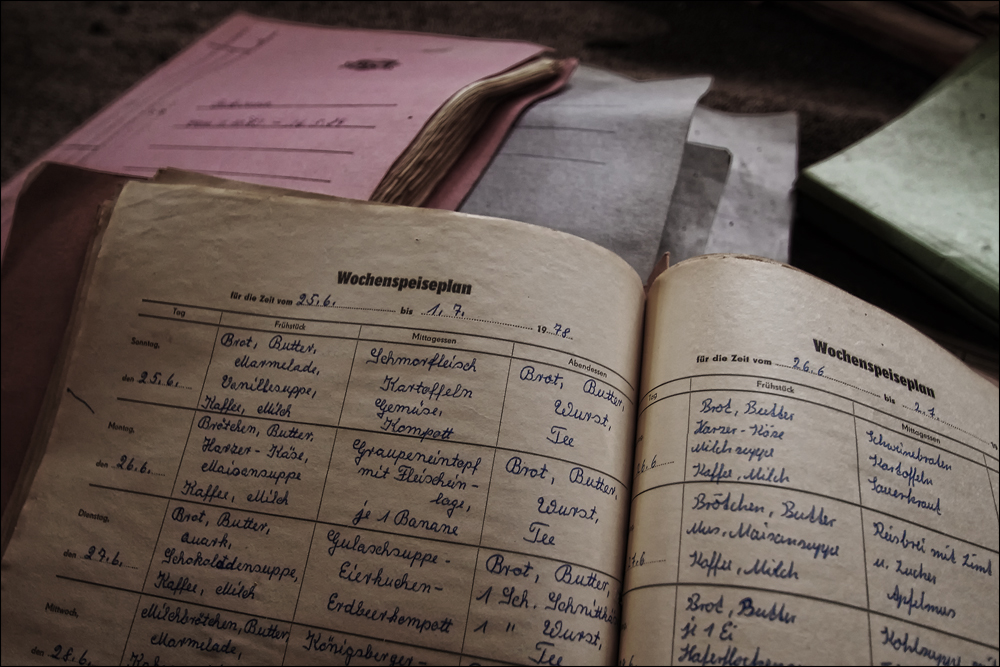 Wochenspeiseplan
für die Zeit vom 25.6. bis 1.7. 1978
Tag Frühstück Mittagessen Abendessen
Sonntag,
den 25.6.
Brot, Butter,
Marmelade,
Vanillesuppe,
Kaffee, Milch
Schmorfleisch
Kartoffeln
Gemüse,
Kompott
Brot, Butter,
Wurst,
Tee
Montag,
den 26.6.
Brötchen, Butter,
Harzer-Käse,
Maissuppe
Kaffee, Milch
Graupeneintopf
mit Fleischein-
lage,
je 1 Banane
Brot, Butter,
Wurst,
Tee
Dienstag,
den 27.6.
Brot, Butter,
Quark,
Schokoladensuppe,
Kaffee, Milch
Gulaschsuppe-
Eierkuchen-
Erdbeerkompott
Brot, Butter,
1 Sch.
1 " Wurst,
Tee
Mittwoch,
den 28.6.
Milchbrötchen, Butter,
Marmelade,
Königsberger-
Wochenspeiseplan
für die Zeit vom 26.6 bis 2.7.
Tag Frühstück Mittagessen
26.6
Brot, Butter
Harzer-Käse
Milchsuppe
Kaffee, Milch
Schweinebraten
Kartoffeln
Sauerkraut
7.6
Brötchen, Butter
Mus, Maissuppe
Kaffee, Milch
Reisbrei mit Zimt
u. Zucker
Apfelmus
Brot, Butter
je 1 Ei